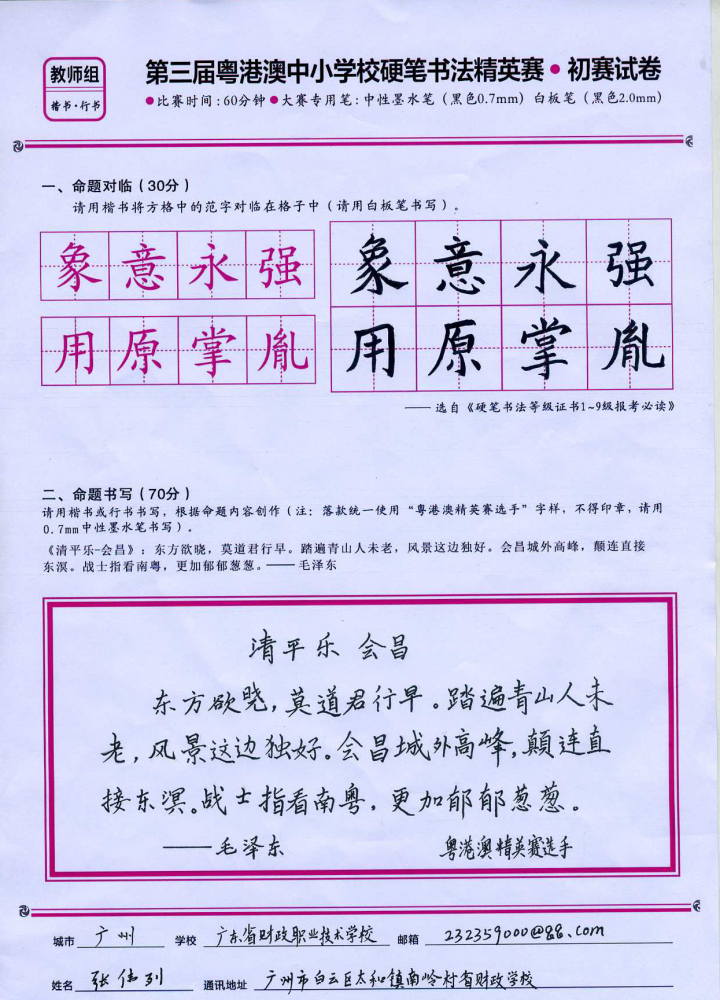 教师组
楷书·行书
第三届粤港澳中小学校硬笔书法精英赛·初赛试卷
●比赛时间:60分钟●大赛专用笔:中性墨水笔（黑色0.7mm）白板笔（黑色2.0mm）
一、命题对临（30分）
请用楷书将方格中的范字对临在格子中（请用白板笔书写）。
象意永强
用原掌胤
象意永强
用原掌胤
——选自《硬笔书法等级证书1~9级报考必读》
二、命题书写（70分）
请用楷书或行书书写，根据命题内容创作（注：落款统一使用“粤港澳精英赛选手”字样，不得印章，请用
0.7mm中性墨水笔书写）。
《清平乐-会昌》：东方欲晓，莫道君行早。踏遍青山人未老，风景这边独好。会昌城外高峰，颠连直接
东溟。战士指看南粤，更加郁郁葱葱。——毛泽东
清平乐 会昌
东方欲晓，莫道君行早。踏遍青山人未
老，风景这边独好。会昌城外高峰，颠连直
接东溟。战士指看南粤，更加郁郁葱葱。
——毛泽东 粤港澳精英赛选手
城市 广州 学校 广东省财政职业技术学校 邮箱 232359000@qq.com
姓名 张伟列 通讯地址 广州市白云区太和镇南岭村省财政学校